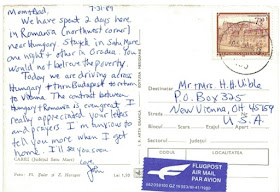 7-31-89
Mom + Dad,
We have spent 2 days here
in Romania (northwest corner)
near Hungary. Stayed in Satu Mare
one night + other in Oradea. You
would not believe the poverty.
Today we are driving across
Hungary + from Budapest return
to Vienna. The contrast between
Hungary + Romania is even great. I
really appreciated your letters
and prayers. I'm anxious to
tell you more when I get
home. I'll see you soon.
Love,
CAREI (Județul Satu Mare)
Lei 1,50
Destinatar
Mr + Mrs. H.H. Uible
P.O. Box 325
New Vienna, OH 45159
U.S.A.
Strada
Nr.
Blocul
Scara
Etajul
Apart.
Sectorul
Județul
Codul
Localitatea
FLUGPOST
AIR MAIL
PAR AVION